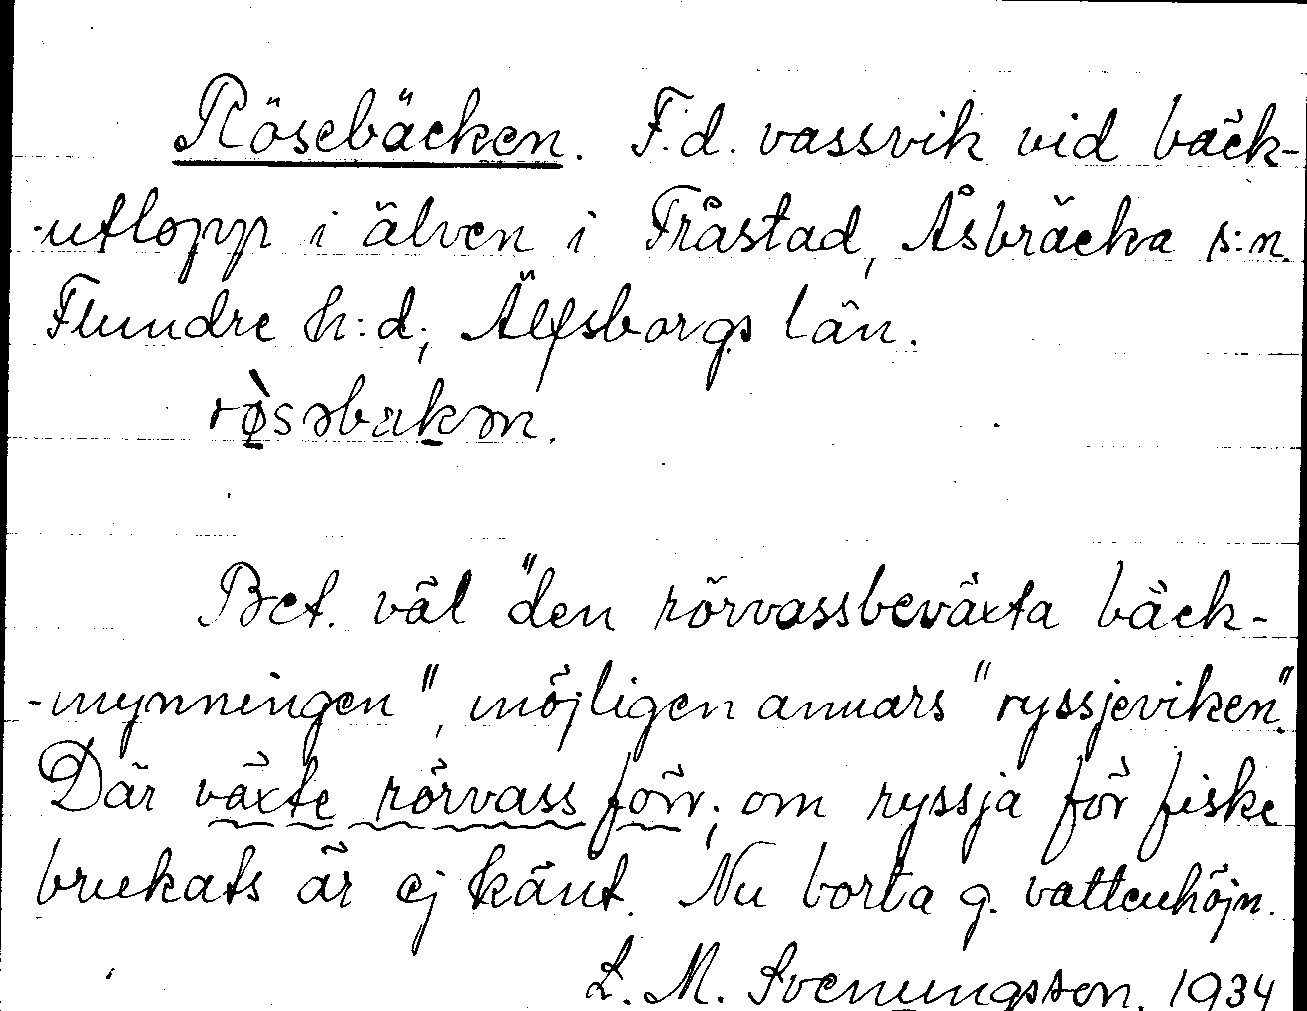 Rösebäcken. F.d. vassvik vid bäck-
-utlopp i älven i Fråstad, Åsbräcka s:n.
Flundre h:d; Älfsborgs län.
rø̀səbäkən.
Bet. väl "den rörvassbeväxta bäck-
-mynningen", möjligen annars "ryssjeviken".
Där växte rörvass förr; om ryssja för fiske
brukats är ej känt. Nu borta g. vattenhöjn.
L. M. Svenungsson. 1934